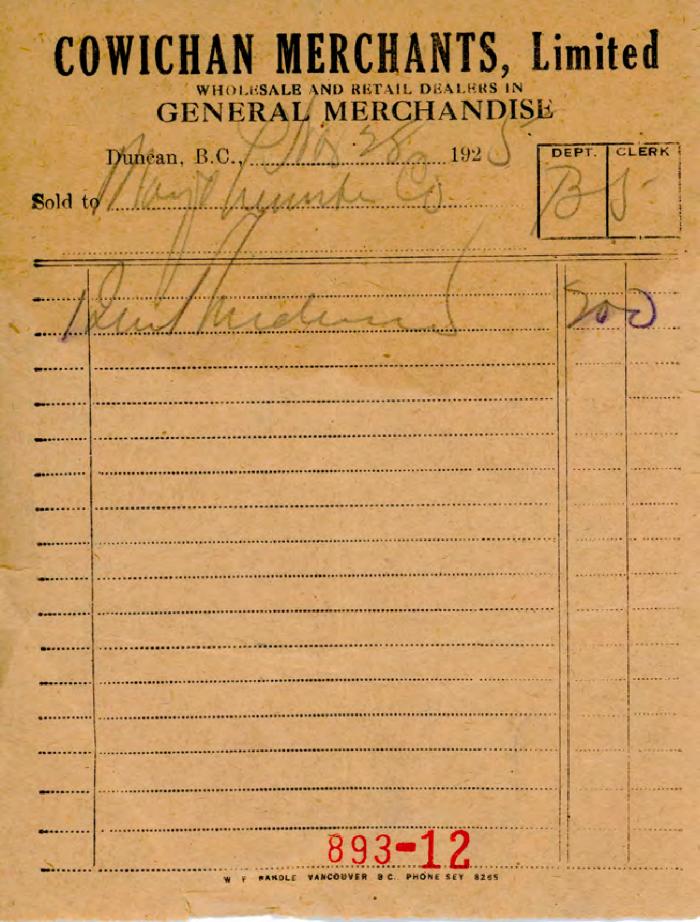 COWICHAN MERCHANTS, Limited
WHOLESALE AND RETAIL DEALERS IN
GENERAL MERCHANDISE
Duncan, B.C., Nov 28 1925
DEPT. CLERK
B 5
Sold to Mayo Co
200
893-12
VANCOUVER B C. PHONE SEY 8265